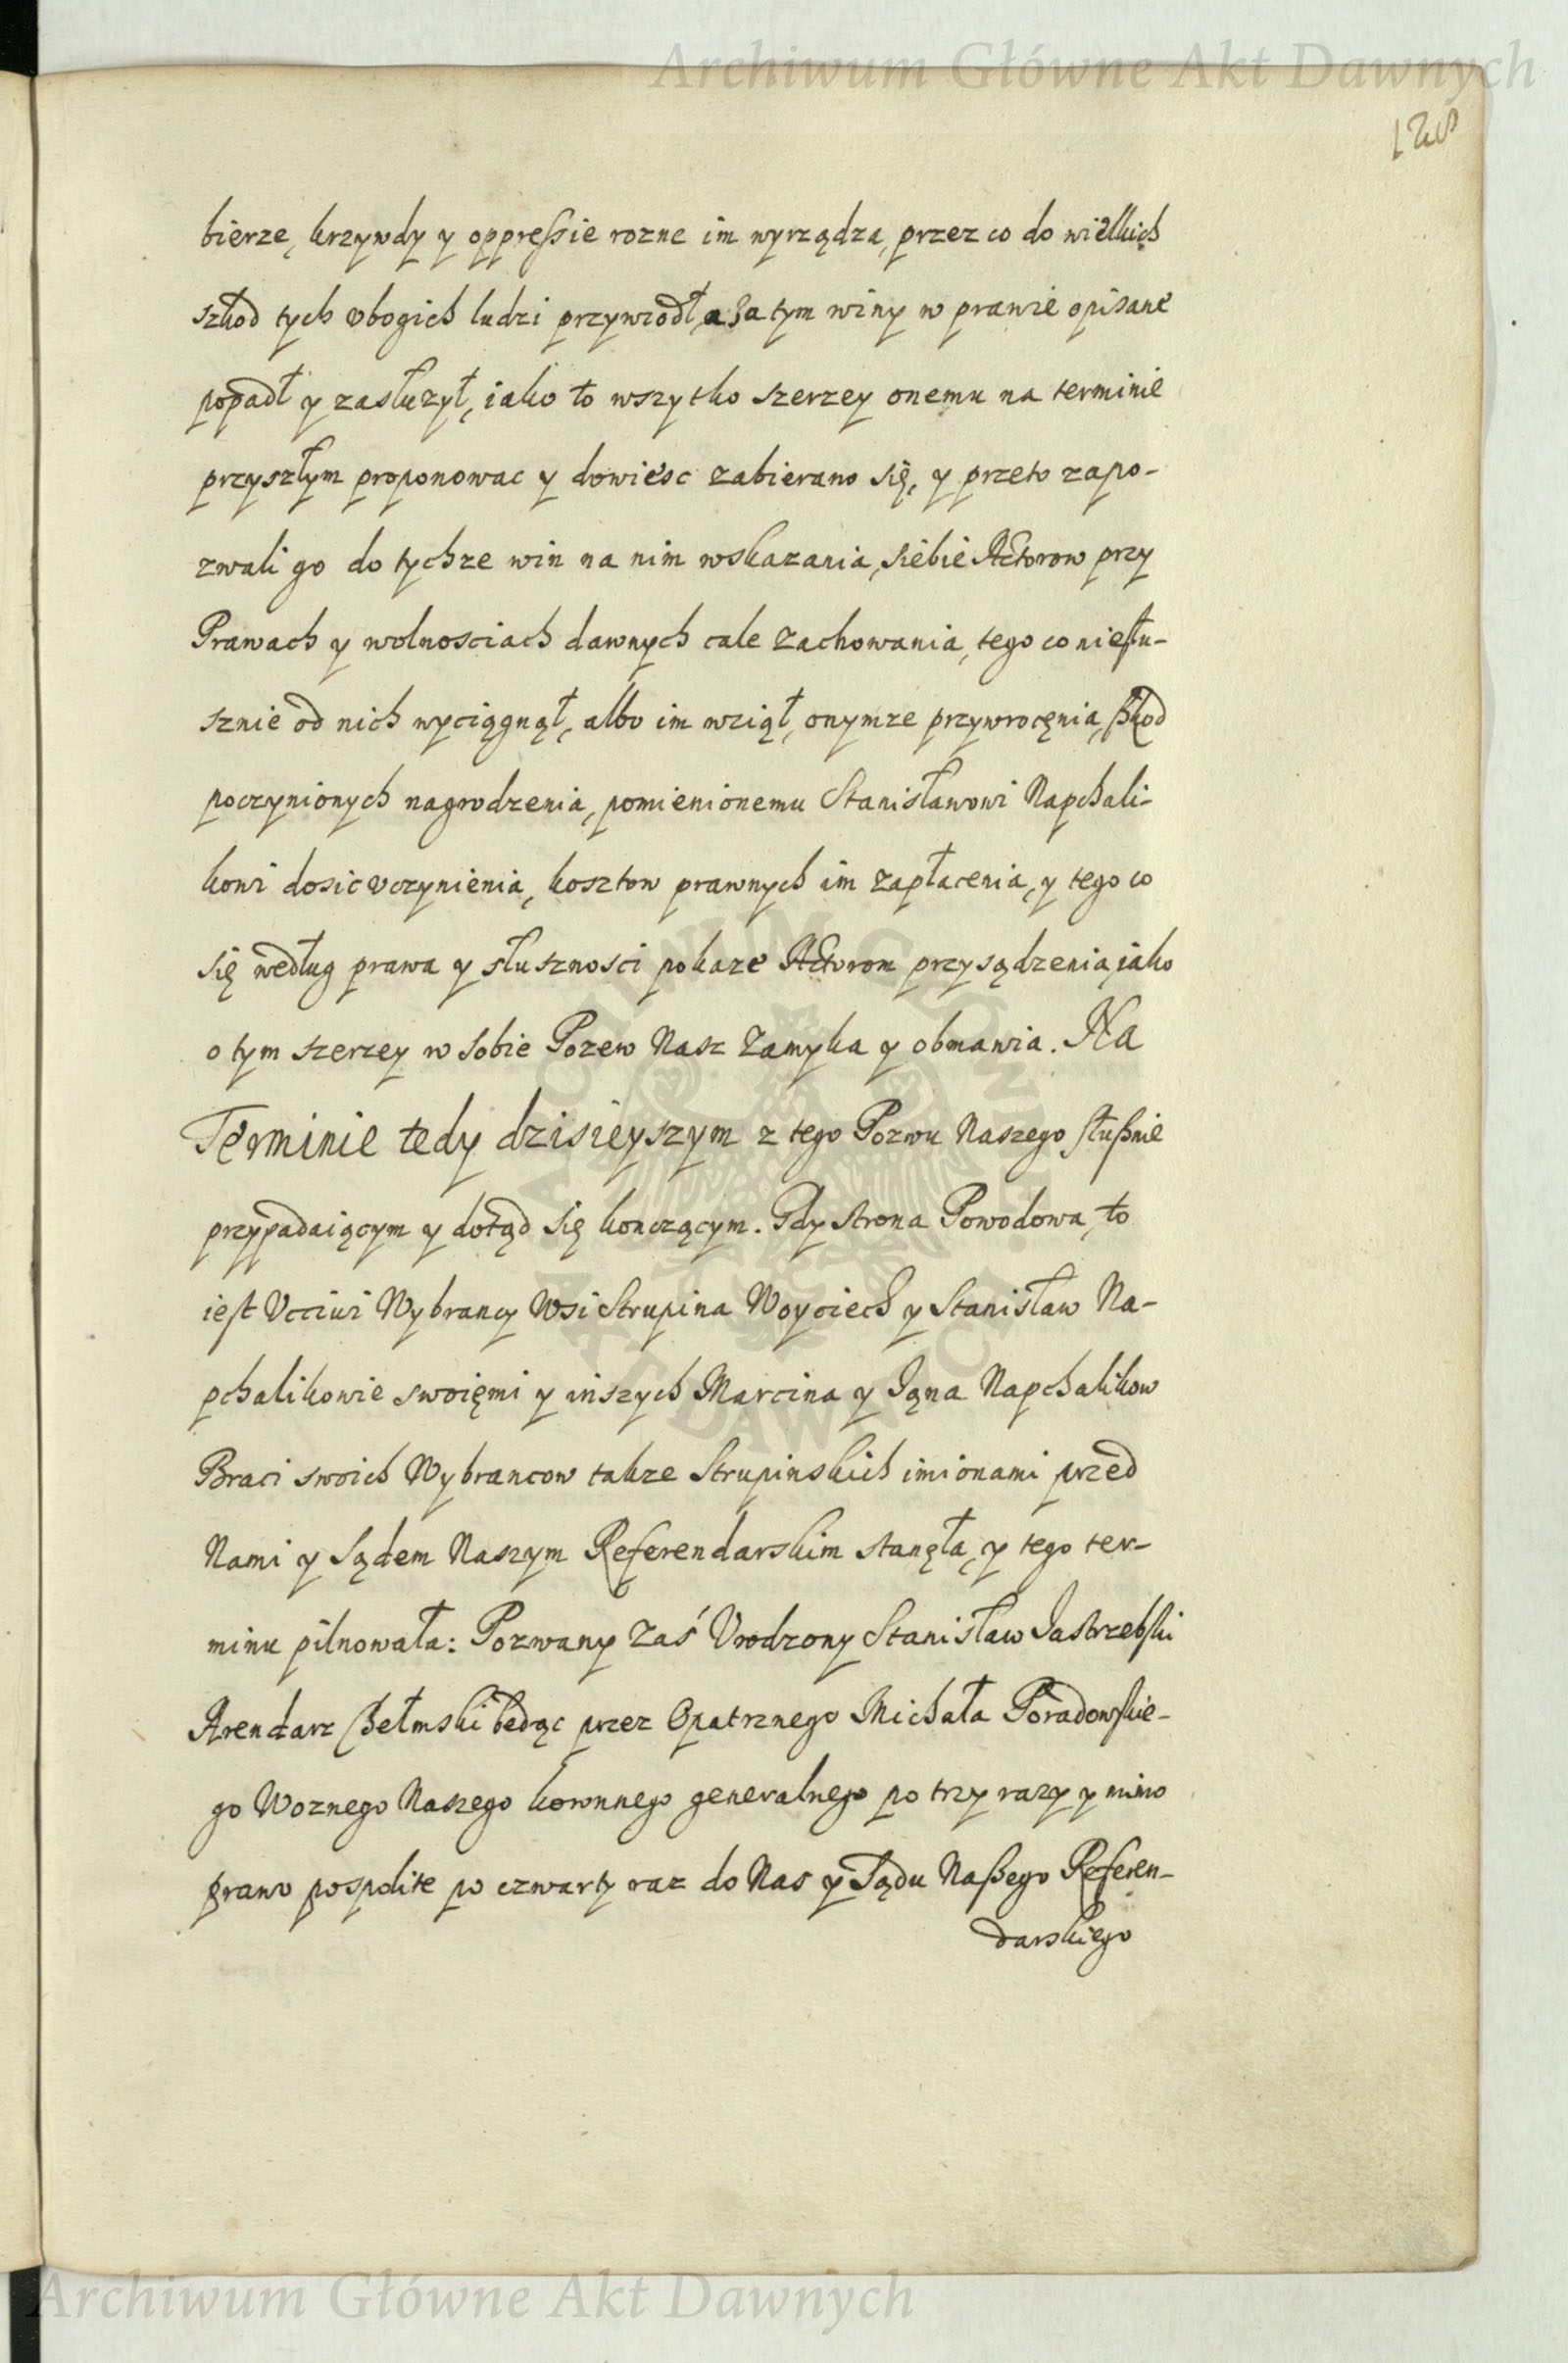 Archiwum Główne Akt Dawnych
128
bierze, krzywdy y oppreſsie rozne im wyrządza, przez co do wielkich
szkod tych vbogich ludzi przywiodł, a za tym winy w prawie opisane
popadł y zasłuzył, iako to wszytko szerzey onemu na terminie
przyszłym proponowac y dowiesc zabierano się, y przeto zapo-
zwali go do tychze win na nim wskazania, siebie Actorow przy
Prawach y wolnosciach dawnych cale zachowania, tego co niesłu-
sznie od nich wyciągnął, albo im wziął, onymze przywrocęnia, ſzkod
poczynionych nagrodzenia, pomienionemu Stanisławowi Napchali-
kowi dosic vczynienia, kosztow prawnych im zapłacenia, y tego co
się według prawa y słusznosci pokaze Actorom przysądzenia, iako
o tym szerzey w sobie Pozew Nasz zamyka y obmawia. Na
Terminie tedy dzisieyszym z tego Pozwu Naszego słuſznie
przypadaiącym y dotąd się konczącym. Gdy strona Powodowa, to
iest Vcciwi Wybrancy Wsi Strupina Woyciech y Stanisław Na-
pchalikowie swoięmi y inszych Marcina y Jąna Napchalikow
Braci swoich Wybrancow takze Strupinskich imionami przed
Nami y Sądem Naszym Referendarskim stanęła, y tego ter-
minu pilnowała: Pozwany zaś Vrodzony Stanisław Jastrzebski
Arendarz Chełmski będąc przez Opatrznego Michała Poradowskie-
go Woznego Naszego koronnego generalnego po trzy razy y mimo
prawo pospolite po czwarty raz do Nas y Sądu Naſzego Referen-
darskiego
Archiwum Główne Akt Dawnych